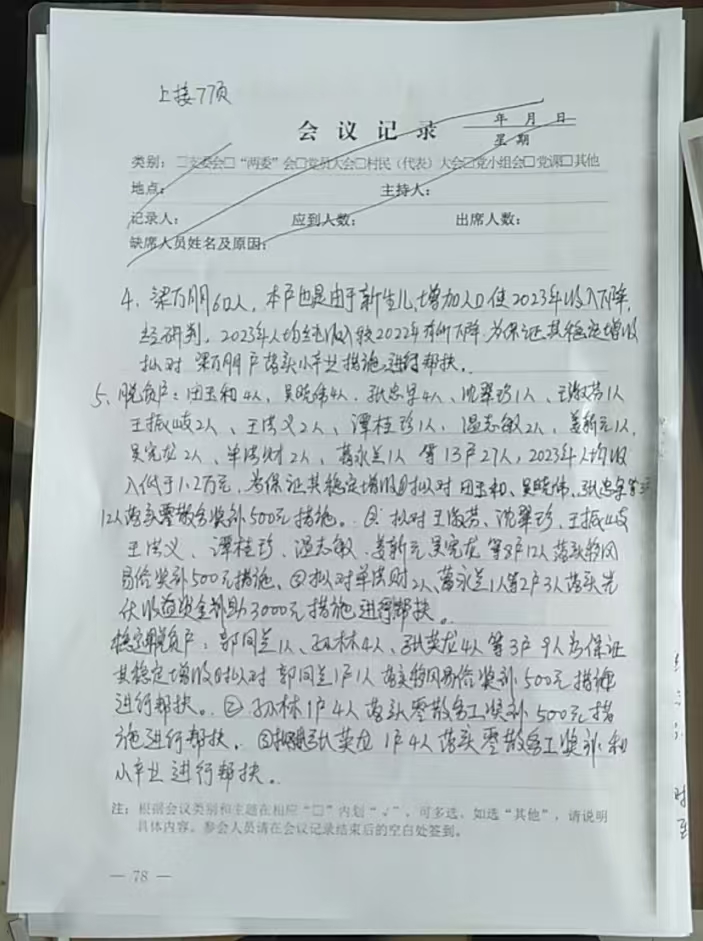 上接77页
会 议 记 录
年 月 日
星 期
类别：□支委会□“两委”会□党员大会□村民（代表）大会□党小组会□党课□其他
地点： 主持人：
记录人： 应到人数： 出席人数：
缺席人员姓名及原因：
4、梁万朋6口人，本户也是由于新生儿，增加人口使2023年收入下降，
经研判，2023年人均纯收入较2022年有所下降，为保证其稳定增收
拟对 梁万朋户落实小产业措施进行帮扶。
5、脱贫户：田玉和4人，吴晓伟4人，张忠早4人、沈翠珍1人、王淑芬1人
王振岐2人、王洪义2人、谭桂珍1人，温志敏2人，姜新元1人，
吴宪龙2人、单洪财2人，葛永兰1人 等13户27人，2023年人均收
入低于1.2万元，为保证其稳定增收①拟对田玉和、吴晓伟、张忠早等3户
12人落实零散务工奖补500元措施。②、拟对王淑芬、沈翠珍、王振岐
王洪义、谭桂珍、温志敏、姜新元吴宪龙等8户12人落实移风
易俗奖补500元措施、③拟对单洪财2人、葛永兰1人等2户3人落实光
伏收益资金补助3000元措施进行帮扶。
稳定脱贫户：郭同兰1人、孙林4人、张英龙4人等3户9人为保证
其稳定增收①拟对 郭同兰1户1人 落实移风易俗奖补500元措施
进行帮扶。②孙林1户4人落实零散务工奖补500元措
施进行帮扶。③拟对张英龙1户4人落实零散务工奖补和
小产业进行帮扶。
注：根据会议类别和主题在相应“□”内划“√”，可多选。如选“其他”，请说明
具体内容。参会人员请在会议记录结束后的空白处签到。
— 78 —